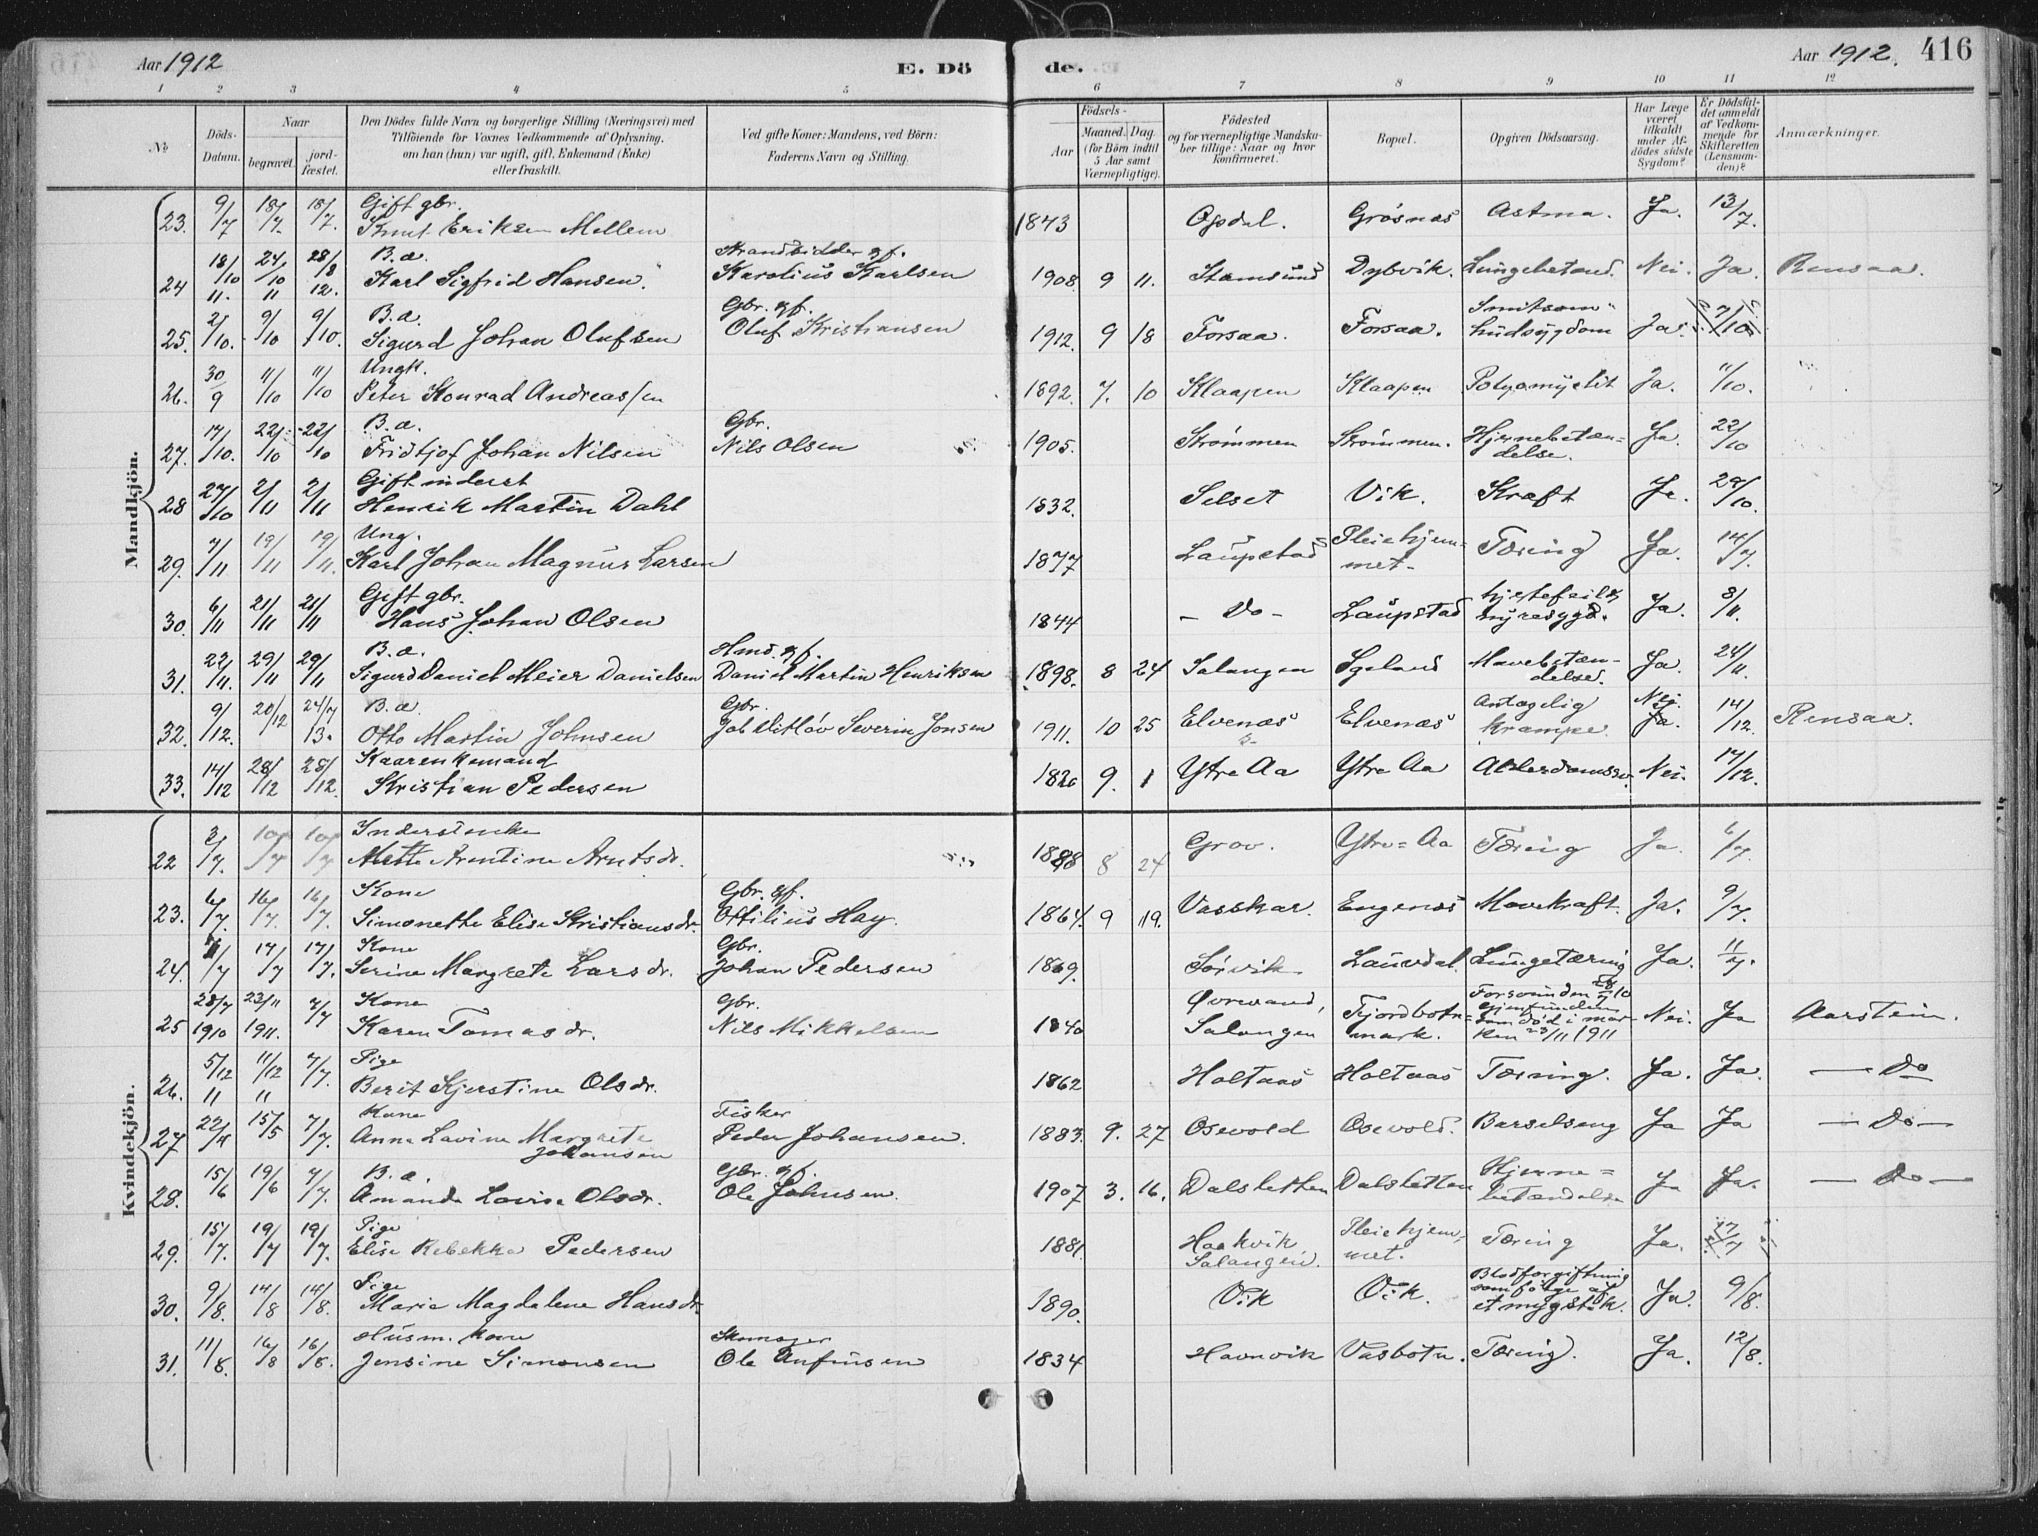 Aar 1912
E. Dö
de.
Aar 1912.
416
1 2 3 4 5 6 7 8 9 10 11 12
№
Döds-Datum.
Naar
begravet.
jord-fæstet.
Den Dödes fulde Navn og borgerlige Stilling (Næringsvei) med
Tilföiende for Voxnes Vedkommende af Oplysning,
om han (hun) var ugift, gift, Enkemand (Enke)
eller fraskilt.
Ved gifte Koner: Mandens, ved Börn:
Faderens Navn og Stilling.
Födsels-
Aar
Maaned. Dag.
(for Börn indtil
5 Aar samt
Værnepligtige).
Födested
og for værnepligtige Mandska-
ber tillige: Naar og hvor
konfirmeret.
Bopæl.
Opgiven Dödsaarsag.
Har Læge
været
tilkaldt
under Af-
dödes sidste
Sygdom?
Er Dödsfal-
det anmeldt
af Vedkom-
mende for
Skifteretten
(Lensman-
den)?
Anmærkninger.
Mandkjön.
23. 9/7 18/7 18/7. Gift gbr.
Knut Eriksen Mellem 1843 Opdal. Grösnes Astma. Ja. 13/7.
24 18/10 11. 24/10 11 28/8 12. B.a.
Karl Sigfrid Hansen. Strandsidder gf.
Karolius Karlsen 1908 9 11. Stamsund Dybvik. Lungebetænd. Nei. Ja. Rensaa.
25. 2/10. 9/10 9/10. B.a.
Sigurd Johan Olufsen Gbr. gf.
Oluf Kristiansen 1912. 9 18 Forsaa. Forsaa. Smitsom
hudsygdom Ja. 7/10
26. 30/9 11/10 11/10 Ungk.
Peter Konrad Andreassen 1892. 7. 10 Klaapen Klaapen Polyomyelit Ja. 11/10.
27. 17/10. 22/10 22/10 B.a.
Fridtjof Johan Nilsen Gbr.
Nils Olsen 1905. Strömmen Strömmen. Hjernebetæn-
delse. Ja. 22/10
28 27/10 2/11 2/11 Gift inderst
Henrik Martin Dahl 1832. Selset Vik. Kræft Ja. 29/10.
29. 7/11 19/11 19/11. Ung.
Karl Johan Magnus Larsen 1877 Laupstad Pleiehjem-
met. Tæring Ja. 14/7.
30. 6/11 21/11 21/11 Gift gbr.
Hans Johan Olsen 1844 - Do - Laupstad hjertefeil &
nyresygd. Ja. 8/11.
31. 22/11. 29/11 29/11 B.a.
Sigurd Daniel Meier Danielsen Hmd. gf.
Daniel Martin Henriksen 1898. 8 24 Salangen Igeland Mavebetæn-
delse. Ja. 24/11.
32. 9/12. 20/12 24/7 13. B.a.
Otto Martin Johnsen Gbr.
Jak Ditløv Severin Jonsen 1911. 10 25 Elvenæs Elvenæs Antagelig
krampe Nei.
Ja. 14/12. Rensaa.
33. 14/12 28/12 28/12. Kaarenkemand
Kristian Pedersen 1826 9. 1 Ytre Aa Ytre Aa Alderdomssv. Nei. 17/12.
Kvindekjön.
22 3/7. 10/7 10/7 Inderstenke
Mette Arentine Arntsdr. 1888 8 24 Grov. Ytre-Aa Tæring Ja. 6/7.
23. 6/7. 16/7. 16/7. Kone
Simonette Elise Kristiansdr. Gbr. gf.
Ottilius Hay. 1864. 9 19. Vasskar. Engenes Mavekræft. Ja. 9/7.
24. 7/7 17/7 17/7. Kone
Serine Margrete Larsdr. Gbr.
Johan Pedersen 1869. Sörvik Laurdal. Lungetæring Ja. 11/7.
25 28/7 1910 23/11 1911. 7/7 Kone
Karen Tomasdr. Gbr.
Nils Mikkelsen 1840 Øvrevand,
Salangen Fjordbotn-
mark. Forsvunden 28/7 10
Gjenfunden
som död i mar-
ken 23/11 1911 Nei. Ja Aarstein.
26. 5/12 11 11/12 11 7/7. Pige
Berit Kjerstine Olsdr. 1862 Holtaas Holtaas Tæring. Ja. Ja. — Do
27 22/4 15/5 7/7. Kone
Anna Lavine Margrete
Johansen Fisker
Peder Johansen. 1883. 9. 27 Osevold Osevold. Barselseng Ja Ja — Do —
28. 15/6 19/6 7/7. B.a.
Amanda Lovise Olsdr. Gbr. gf.
Ole Johnsen. 1907 3. 16. Dalsletten Dalsletten Hjerne-
betændelse Ja Ja. — Do —
29. 15/7. 19/7 19/7. Pige
Elise Rebekka Pedersen 1881. Haakvik
Salangen. Pleiehjem-
met. Tæring Ja. 17/7
30. 9/8. 14/8 14/8. Pige
Marie Magdalene Hansdr. 1890. Vik Vik. Blodforgiftning
som fölge af
et mygstik. Ja. 9/8.
31. 11/8. 16/8 16/8. Husm. kone
Jensine Simonsen Skomager
Ole Anfinsen 1834 Havnvik Vasbotn. Tæring. Ja. 12/8.